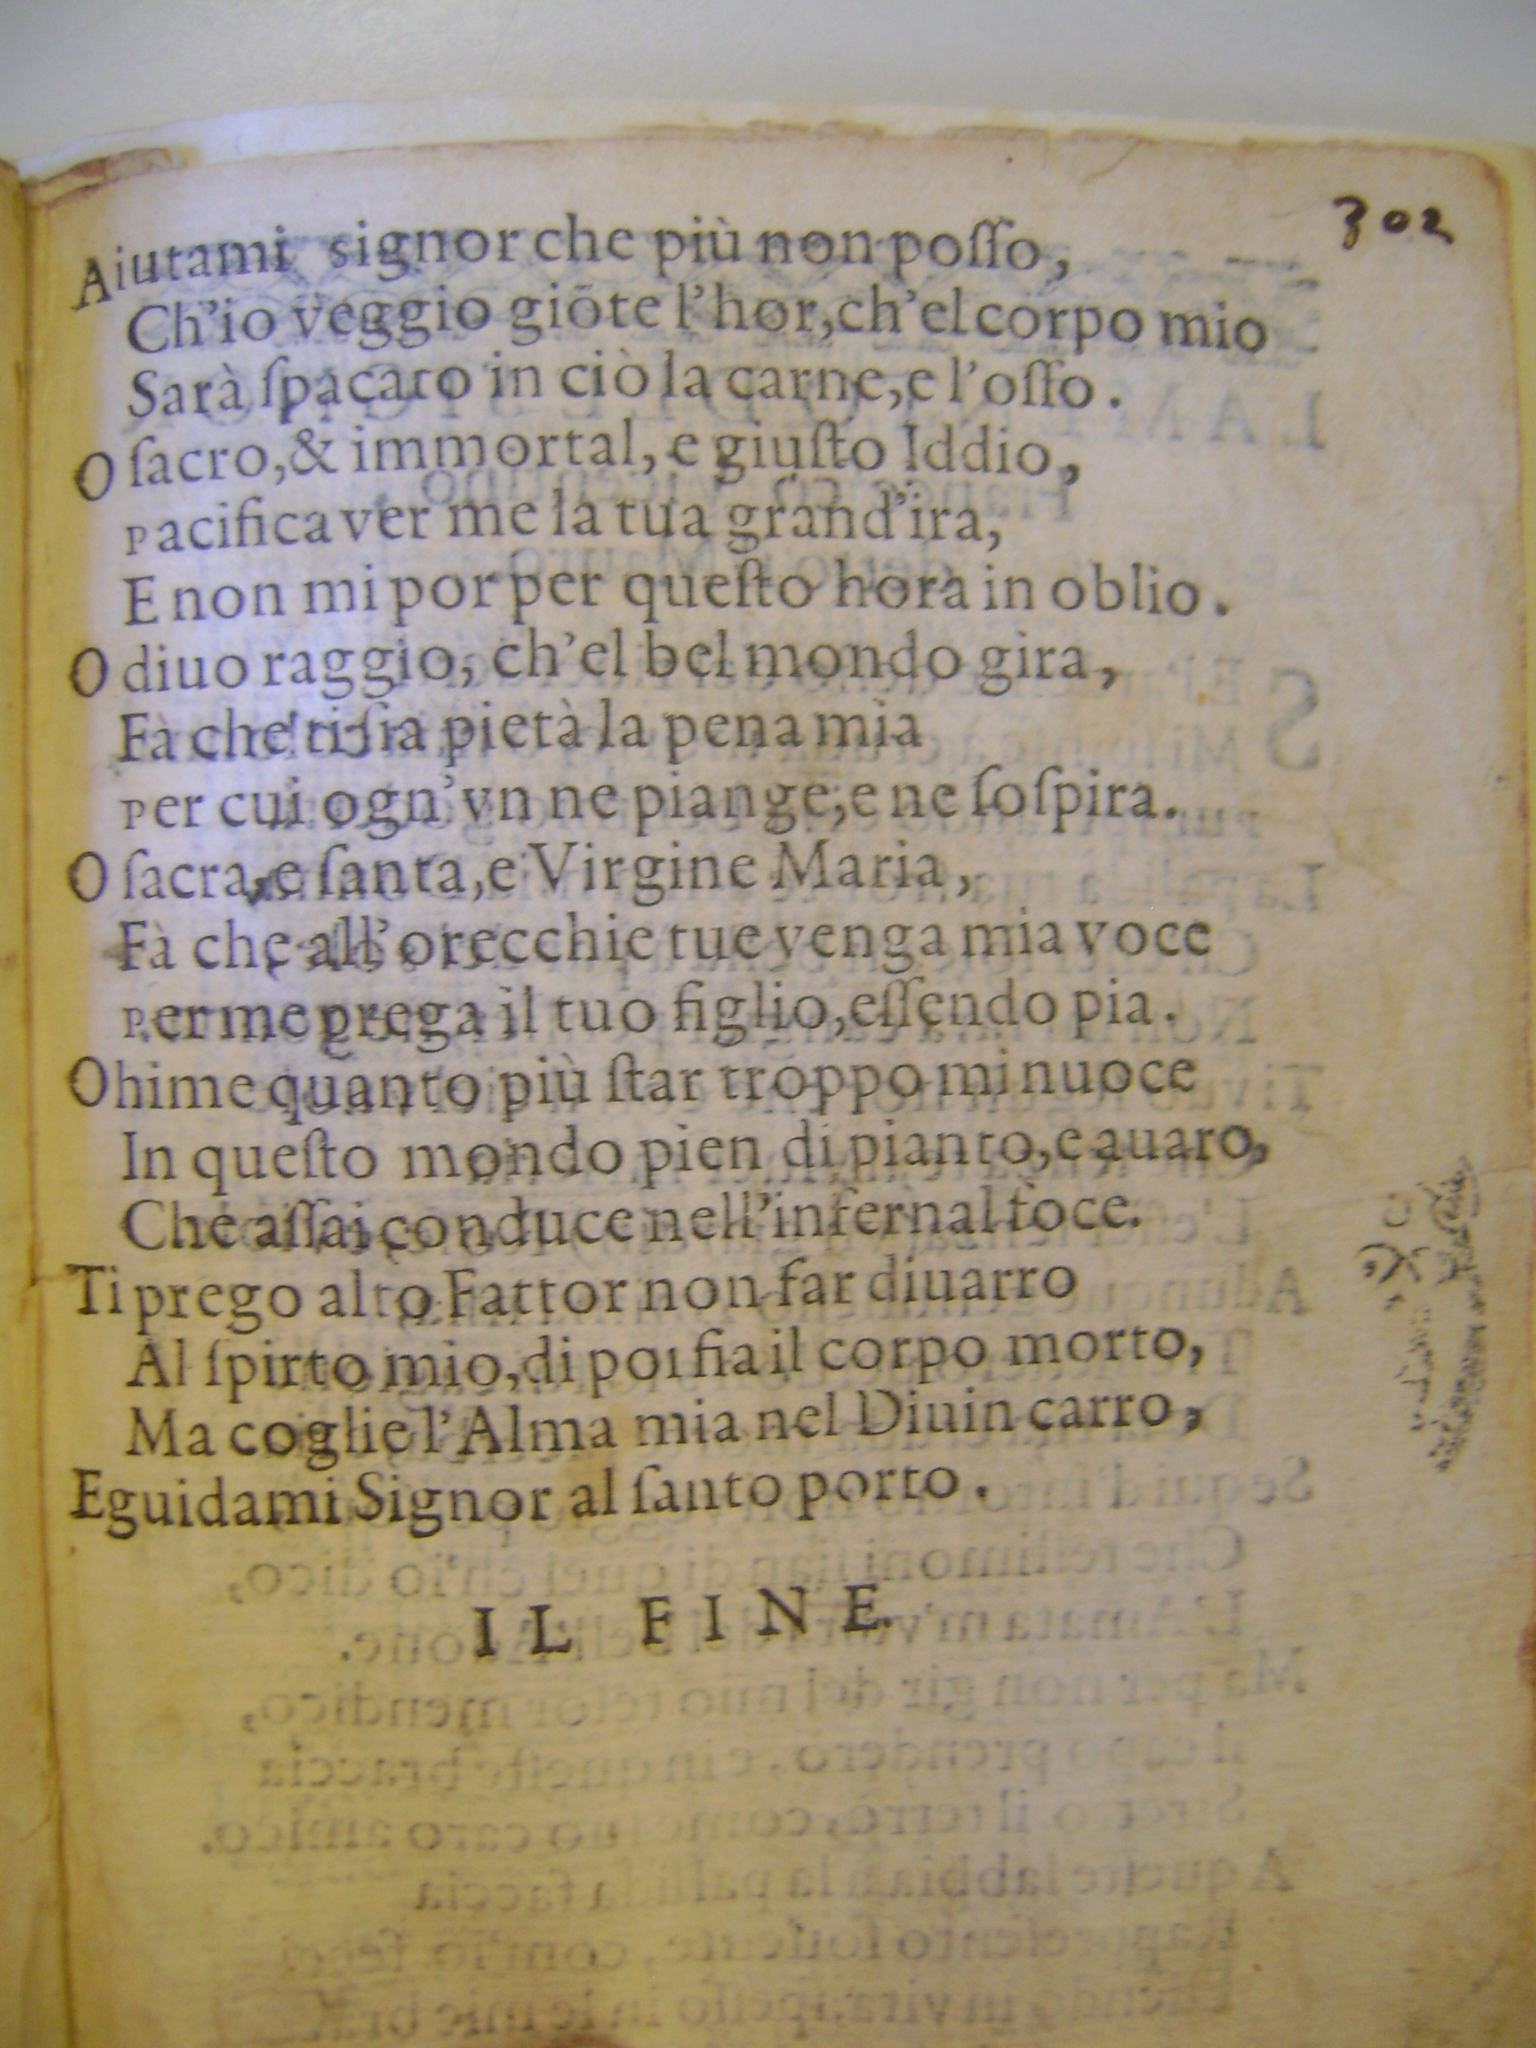 302
Aiutami signor che più non poſſo,
Ch'io veggio giōte l'hor, ch'el corpo mio
Sarà ſpacato in ciò la carne, e l'oſſo.
O ſacro, & immortal, e giuſto Iddio,
pacifica ver me la tua grand'ira,
E non mi por per queſto hora in oblio.
O diuo raggio, ch'el bel mondo gira,
Fà che ti ſia pietà la pena mia
per cui ogn'vn ne piange, e ne ſoſpira.
O ſacra, e ſanta, e Virgine Maria,
Fà che all'orecchie tue venga mia voce
per me prega il tuo figlio, eſſendo pia.
Ohime quanto più ſtar troppo mi nuoce
In queſto mondo pien di pianto, e auaro,
Che aſſai conduce nell'infernal foce.
Ti prego alto Fattor non far diuarro
Al ſpirto mio, di poi fia il corpo morto,
Ma coglie l'Alma mia nel Diuin carro,
E guidami Signor al ſanto porto.
IL FINE.